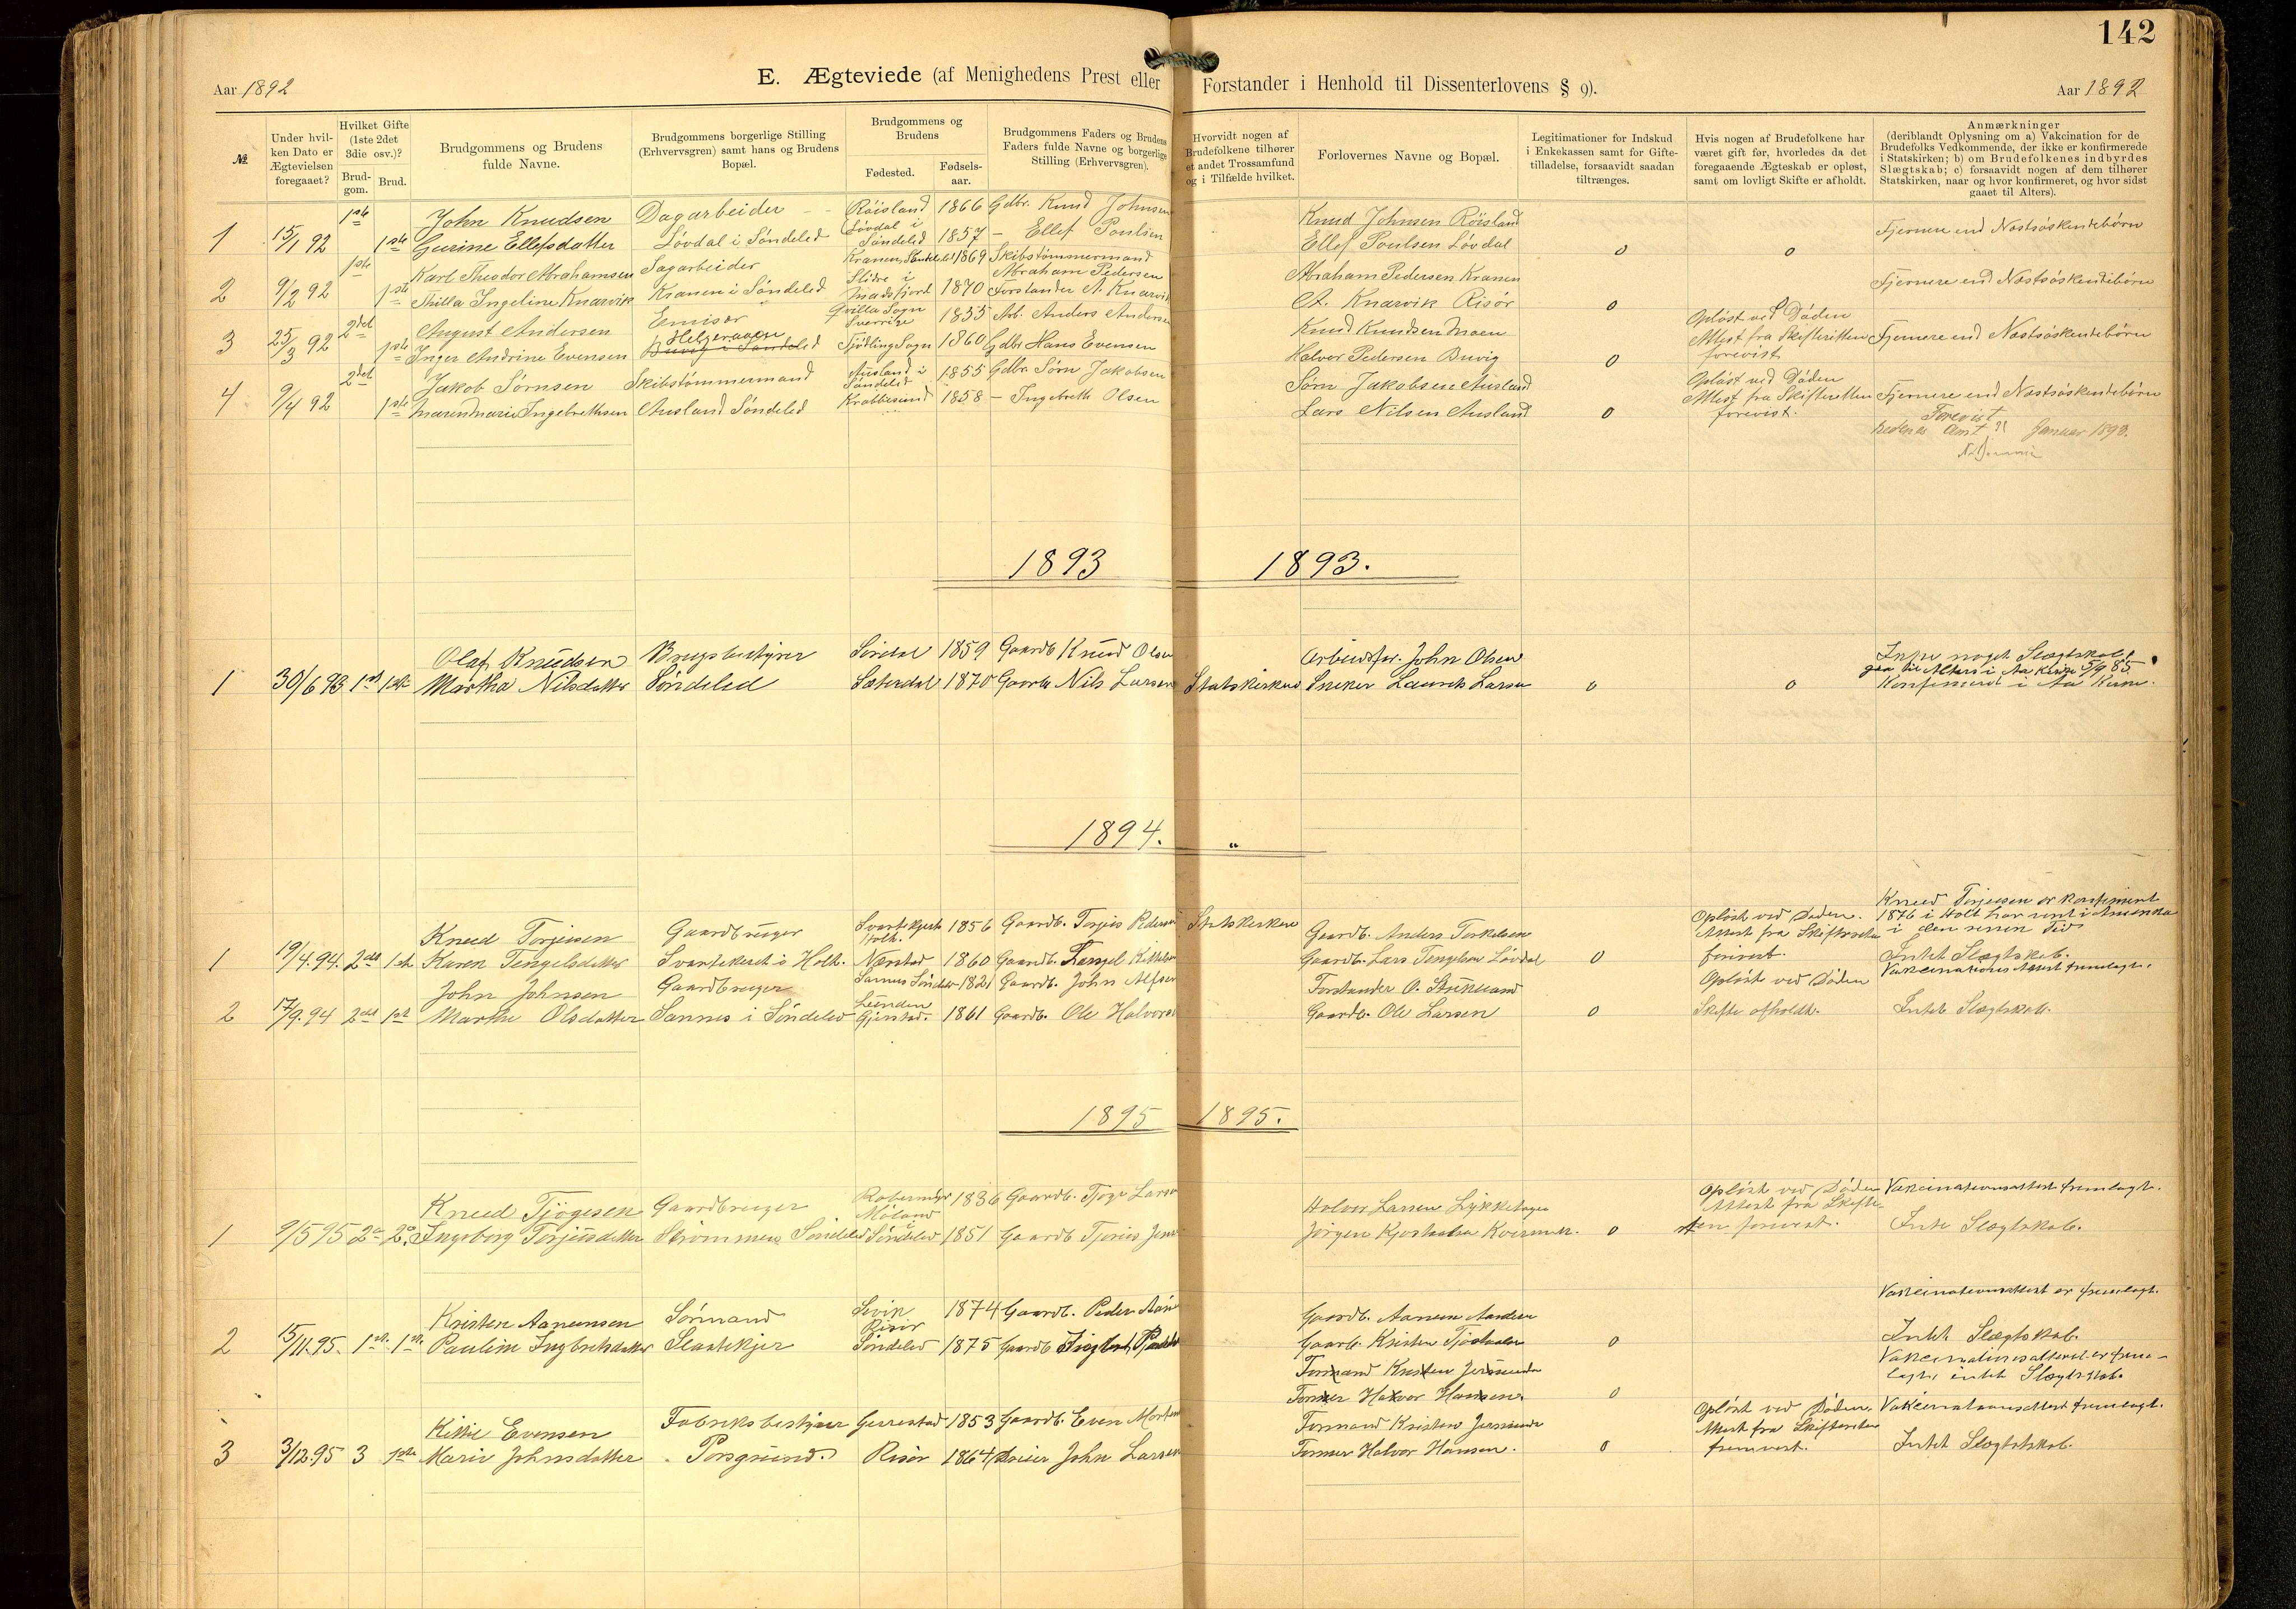 142
Aar 1892
E. Ægteviede (af Menighedens Prest eller
Forstander i Henhold til Dissenterlovens § 9).
Aar 1892
№.
Under hvil-
ken Dato er
Ægtevielsen
foregaaet?
Hvilket Gifte
(1ste 2det
3die osv.)?
Brud-
gom.
Brud.
Brudgommens og Brudens
fulde Navne.
Brudgommens borgerlige Stilling
(Erhvervsgren) samt hans og Brudens
Bopæl.
Brudgommens og
Brudens
Fødested.
Fødsels-
aar.
Brudgommens Faders og Brudens
Faders fulde Navne og borgerlige
Stilling (Erhvervsgren).
Hvorvidt nogen af
Brudefolkene tilhører
et andet Trossamfund
og i Tilfælde hvilket.
Forlovernes Navne og Bopæl.
Legitimationer for Indskud
i Enkekassen samt for Gifte-
tilladelse, forsaavidt saadan
tiltrænges.
Hvis nogen af Brudefolkene har
været gift før, hvorledes da det
foregaaende Ægteskab er opløst,
samt om lovligt Skifte er afholdt.
Anmærkninger
(deriblandt Oplysning om a) Vakcination for de
Brudefolks Vedkommende, der ikke er konfirmerede
i Statskirken; b) om Brudefolkenes indbyrdes
Slægtskab; c) forsaavidt nogen af dem tilhører
Statskirken, naar og hvor konfirmeret, og hvor sidst
gaaet til Alters).
1ste John Knudsen Dagarbeider Röisland 1866 Gdbr. Knud Johnsen Knud Johnsen Röisland
1 15/1 92 1ste Gurine Ellefsdatter Lövdal i Söndeled Lövdal i Söndeled 1857 – Ellef Poulsen Ellef Poulsen Lövdal 0 0 Fjernere end Næstsöskendebörn
1ste Karl Theodor Abrahamsen Sagarbeider Kranen, Söndeled 1869 Skibstömmermand Abraham Pedersen Abraham Pedersen Kranen
2 9/2 92 1ste Thilla Ingeline Knarvik Kranen i Söndeled Slidre i 1870 Forstander A. Knarvik A. Knarvik Risör 0 Fjernere end Næstsöskendebörn
2det August Andersen Emisær Sogn Sverrige 1855 Arb. Anders Andersen Knud Knudsen Moen Oplöst ved Döden
3 25/3 92 1ste Inger Andrine Evensen Helgeraaen Buvig i Söndeled Tjödling Sogn 1860 Gdbr Hans Evensen Halvor Pedersen Buvig 0 Attest fra Skifteretten forevist Fjernere end Næstsöskendebörn
2det Jakob Sörnsen Skibstömmermand Ausland i Söndeled 1855 Gdbr. Sörn Jakobsen Sörn Jakobsen Ausland Oplöst ved Döden
4 9/4 92 1ste Maren Marie Ingebrethsen Ausland Söndeled Krabbesund 1858 – Ingebreth Olsen Lars Nilsen Ausland 0 Attest fra Skifteretten forevist. Fjernere end Næstsöskendebörn
Forevist
Nedenes Amt Januar 1893.
1893 1893.
Olaf Knudsen Brugsbestyrer 1859 Gaardb Knud Olsen Arbeidsfor. John Olsen Ikke noget Slægtskab
gaa til Alters i Aa Kirke 5/9 85
1 30/6 93 1st 1ste Martha Nilsdatter Söndeled Sæterdal 1870 Gaardb Nils Larsen Statskirken Snekker Laurits Larsen 0 0 Konfirmeret i Aa Kirke.
1894. "
Knud Torjusen Gaardbruger Svartekjerst Holt. 1856 Gaardb. Torjus Pedersen Statskirken Gaardb. Anders Terkelsen Oplöst ved Döden. Knud Torjussen er konfirmert
1876 i Holt har vært i Amerika
i den senere Tid
1 19/4.94. 2det 1st Karen Tengelsdatter Svartekerst i Holt. Nærstad 1860 Gaardb. Tengel Kittelsen Gaardb. Lars Tengelsen Lövdal 0 Attest fra Skifteretten forevist. Intet Slægtskab.
John Johnsen Gaardbruger Sannes Söndeled 1821 Gaardb. John Alfsen Forstander O. Oplöst ved Döden Vakcinations Attest fremlagt.
2 17/9.94 2det 1st Marthe Olsdatter Sannes i Söndeled Lunden Gjerstad. 1861 Gaardb. Ole Halvorsen Gaardb. Ole Larsen 0 Skifte afholdt. Intet Slægtskab.
1895 1895.
Knud Tjögesen Gaardbruger 1836 Gaardb. Tjöge Larsen Halvor Larsen Lykkehagen Oplöst ved Döden Vakcinationsattest fremlagt.
1 9/5 95 2de 2de Ingeborg Torjusdatter Strömmen Söndeled Söndeled 1851 Gaardb Jörgen 0 Attest fra Skifteretten forevist. Intet Slægtskab.
Kristen Aanensen Sömand Sivik Risör 1874 Gaardb. Peder Gaardb. Aanen Vakcinationsattest er fremlagt.
2 15/11.95. 1st. 1st. Pauline Ingbretsdatter Slaatekjer Söndeled 1875 Gaardb Gaardb. Kristen 0 Intet Slægtskab.
Formand Kristen Vakcinationsattest er frem-
Tømmer Halvor Hansen 0 lagt, intet Slægtskab.
Kittil Evensen Fabriksbestyrer Gjerrestad 1853 Gaardb. Even Formand Kristen Oplöst ved Döden. Vakcinationsattest fremlagt.
3 3/12.95 3 1ste Marie Johnsdatter Porsgrund. Risör 1864 John Larsen Tømmer Halvor Hansen. 0 Attest fra Skifteretten fremvist. Intet Slægtskab.